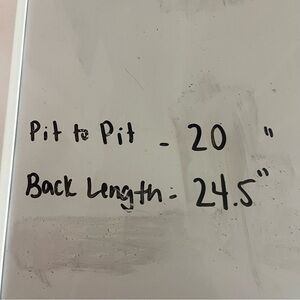 Pit to Pit - 20 "
Back Length - 24.5"